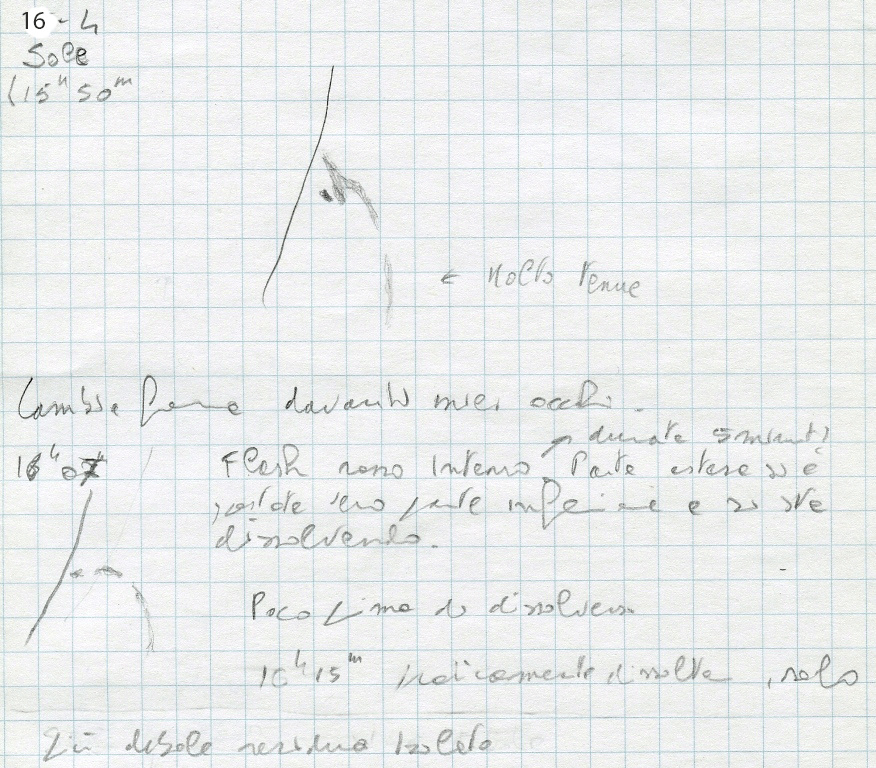 16 - 4
Sole
(15h 50m
← Molto tenue
Cambia forma davanti miei occhi.
↗ durata 5 minuti
16h 07 Flash rosso intenso Parte estesa si è
spostata verso parte inferiore e si sta
dissolvendo.
Poco prima di dissolversi
16h 15m praticamente dissolta, solo
più debole residuo isolato